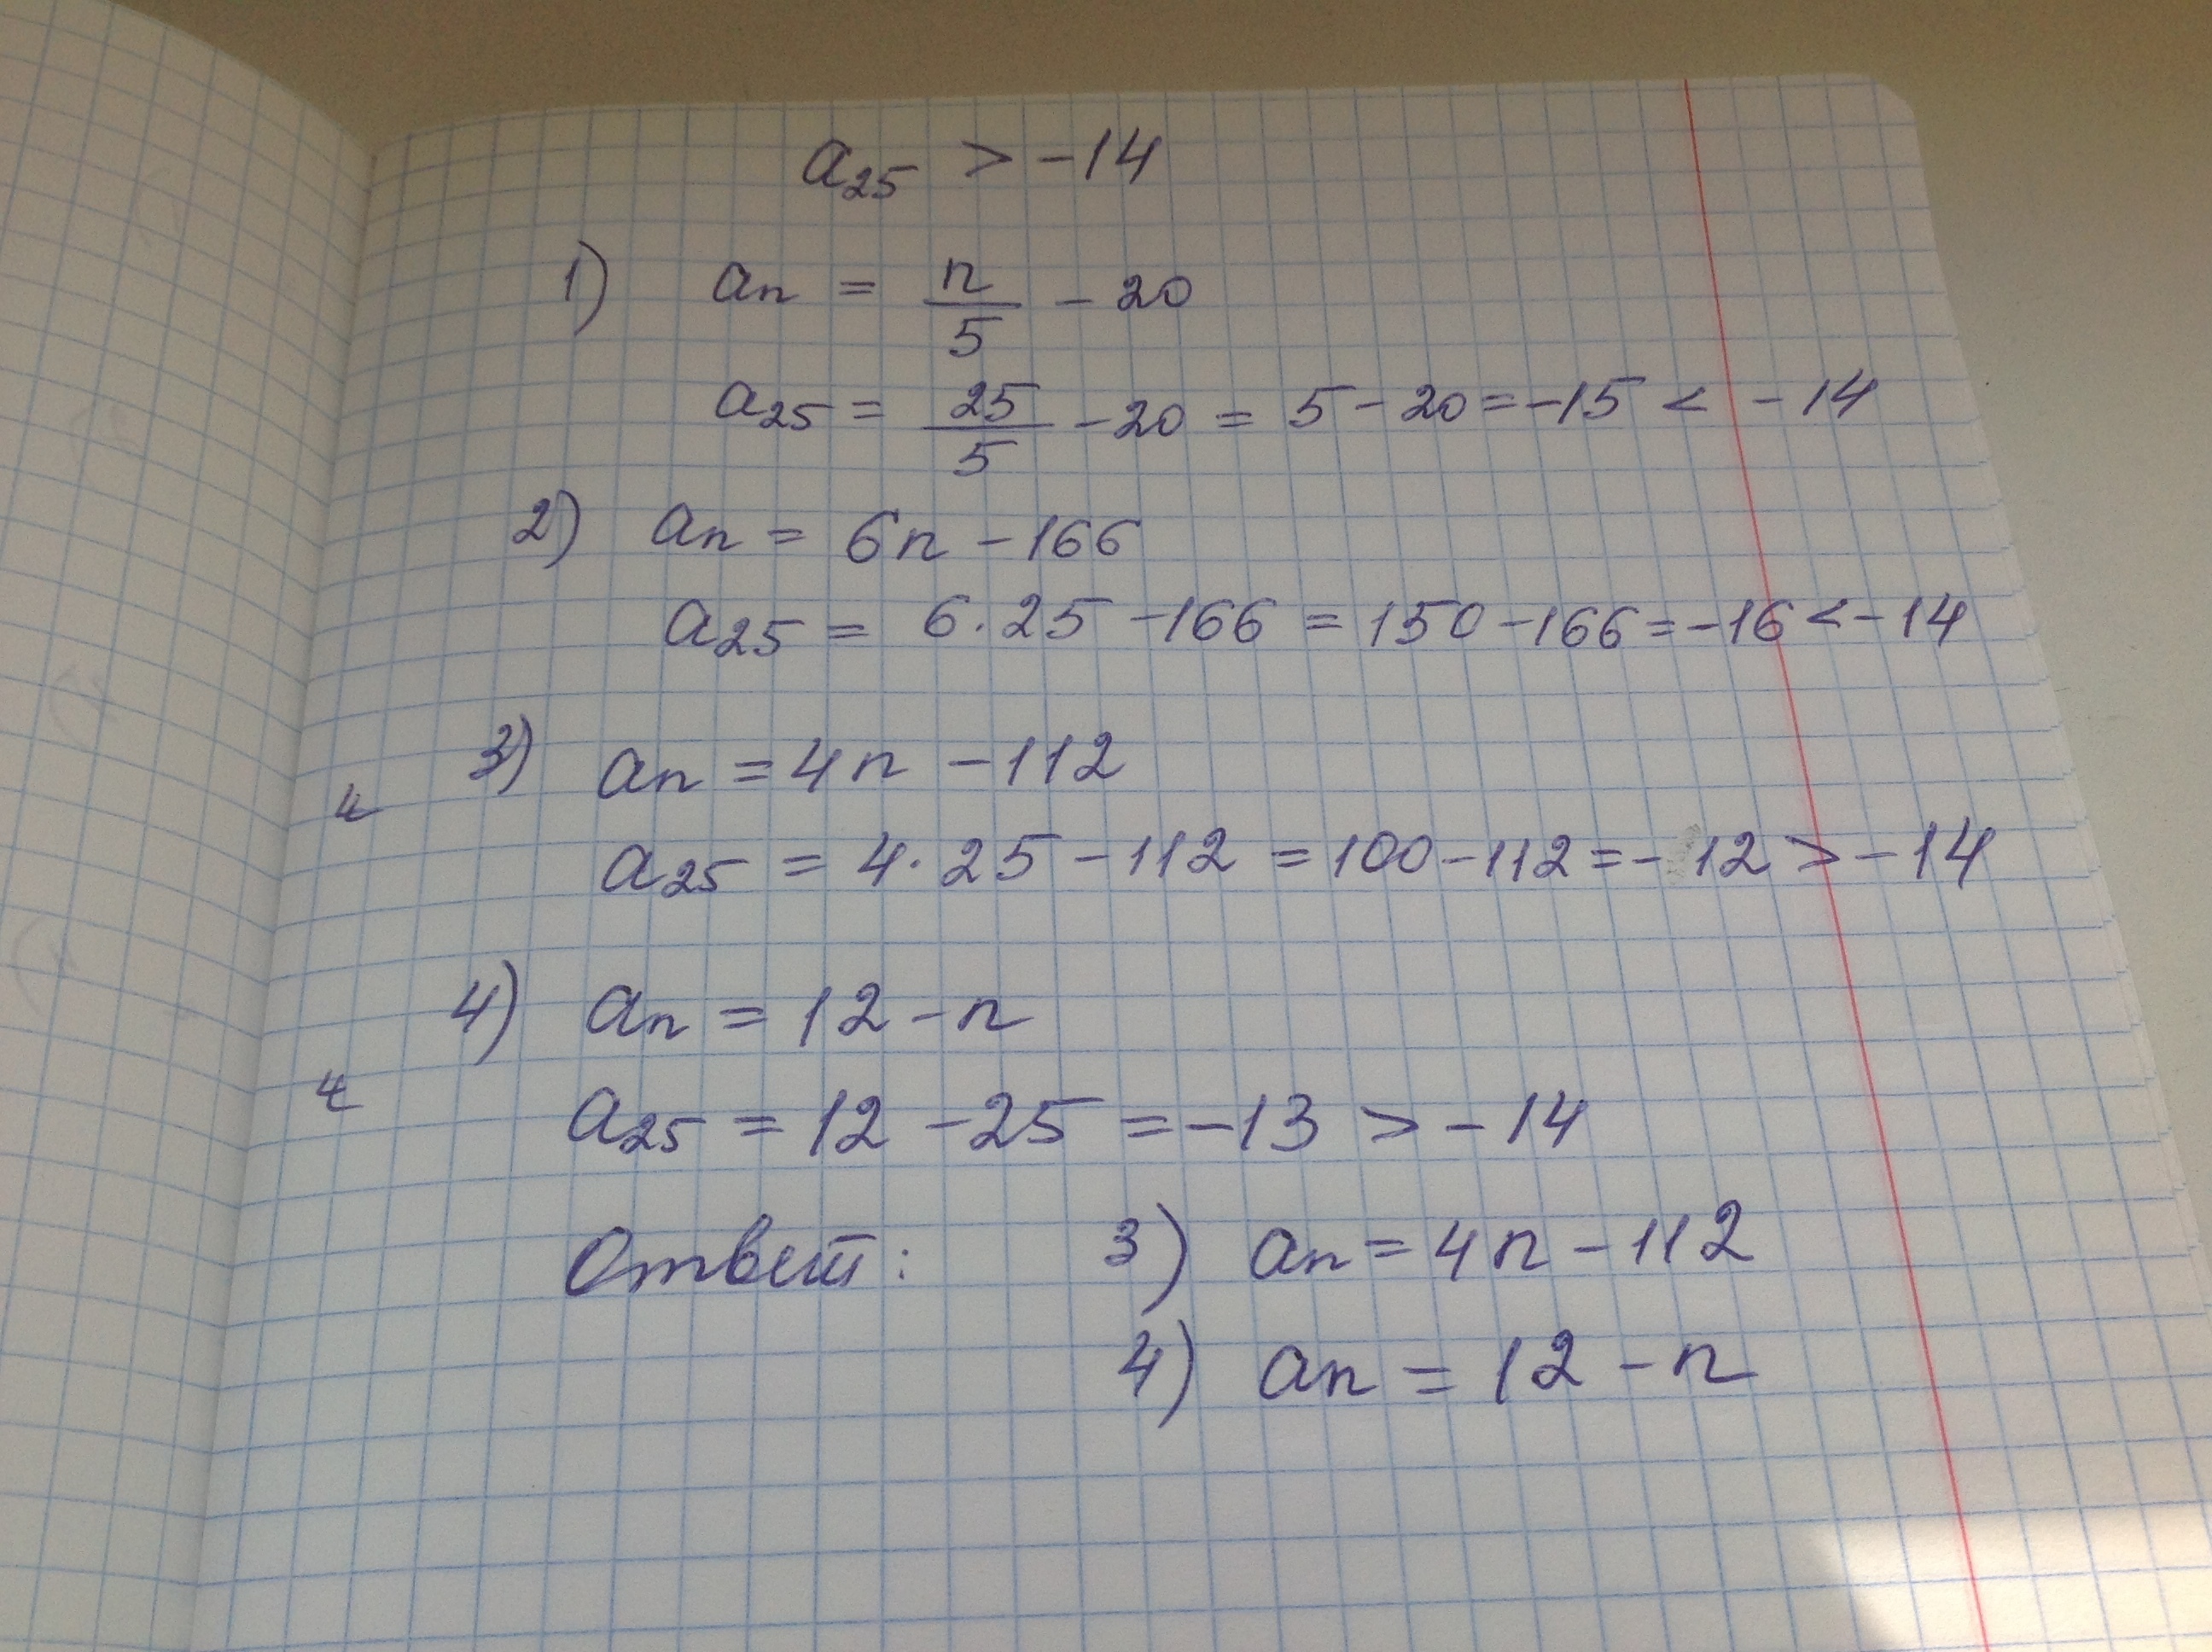 a₂₅ > -14
1) aₙ = n/5 - 20
a₂₅ = 25/5 - 20 = 5 - 20 = -15 < -14
2) aₙ = 6n - 166
a₂₅ = 6·25 - 166 = 150 - 166 = -16 < -14
3) aₙ = 4n - 112
a₂₅ = 4·25 - 112 = 100 - 112 = -12 > -14
4) aₙ = 12 - n
a₂₅ = 12 - 25 = -13 > -14
Ответ: 3) aₙ = 4n - 112
4) aₙ = 12 - n